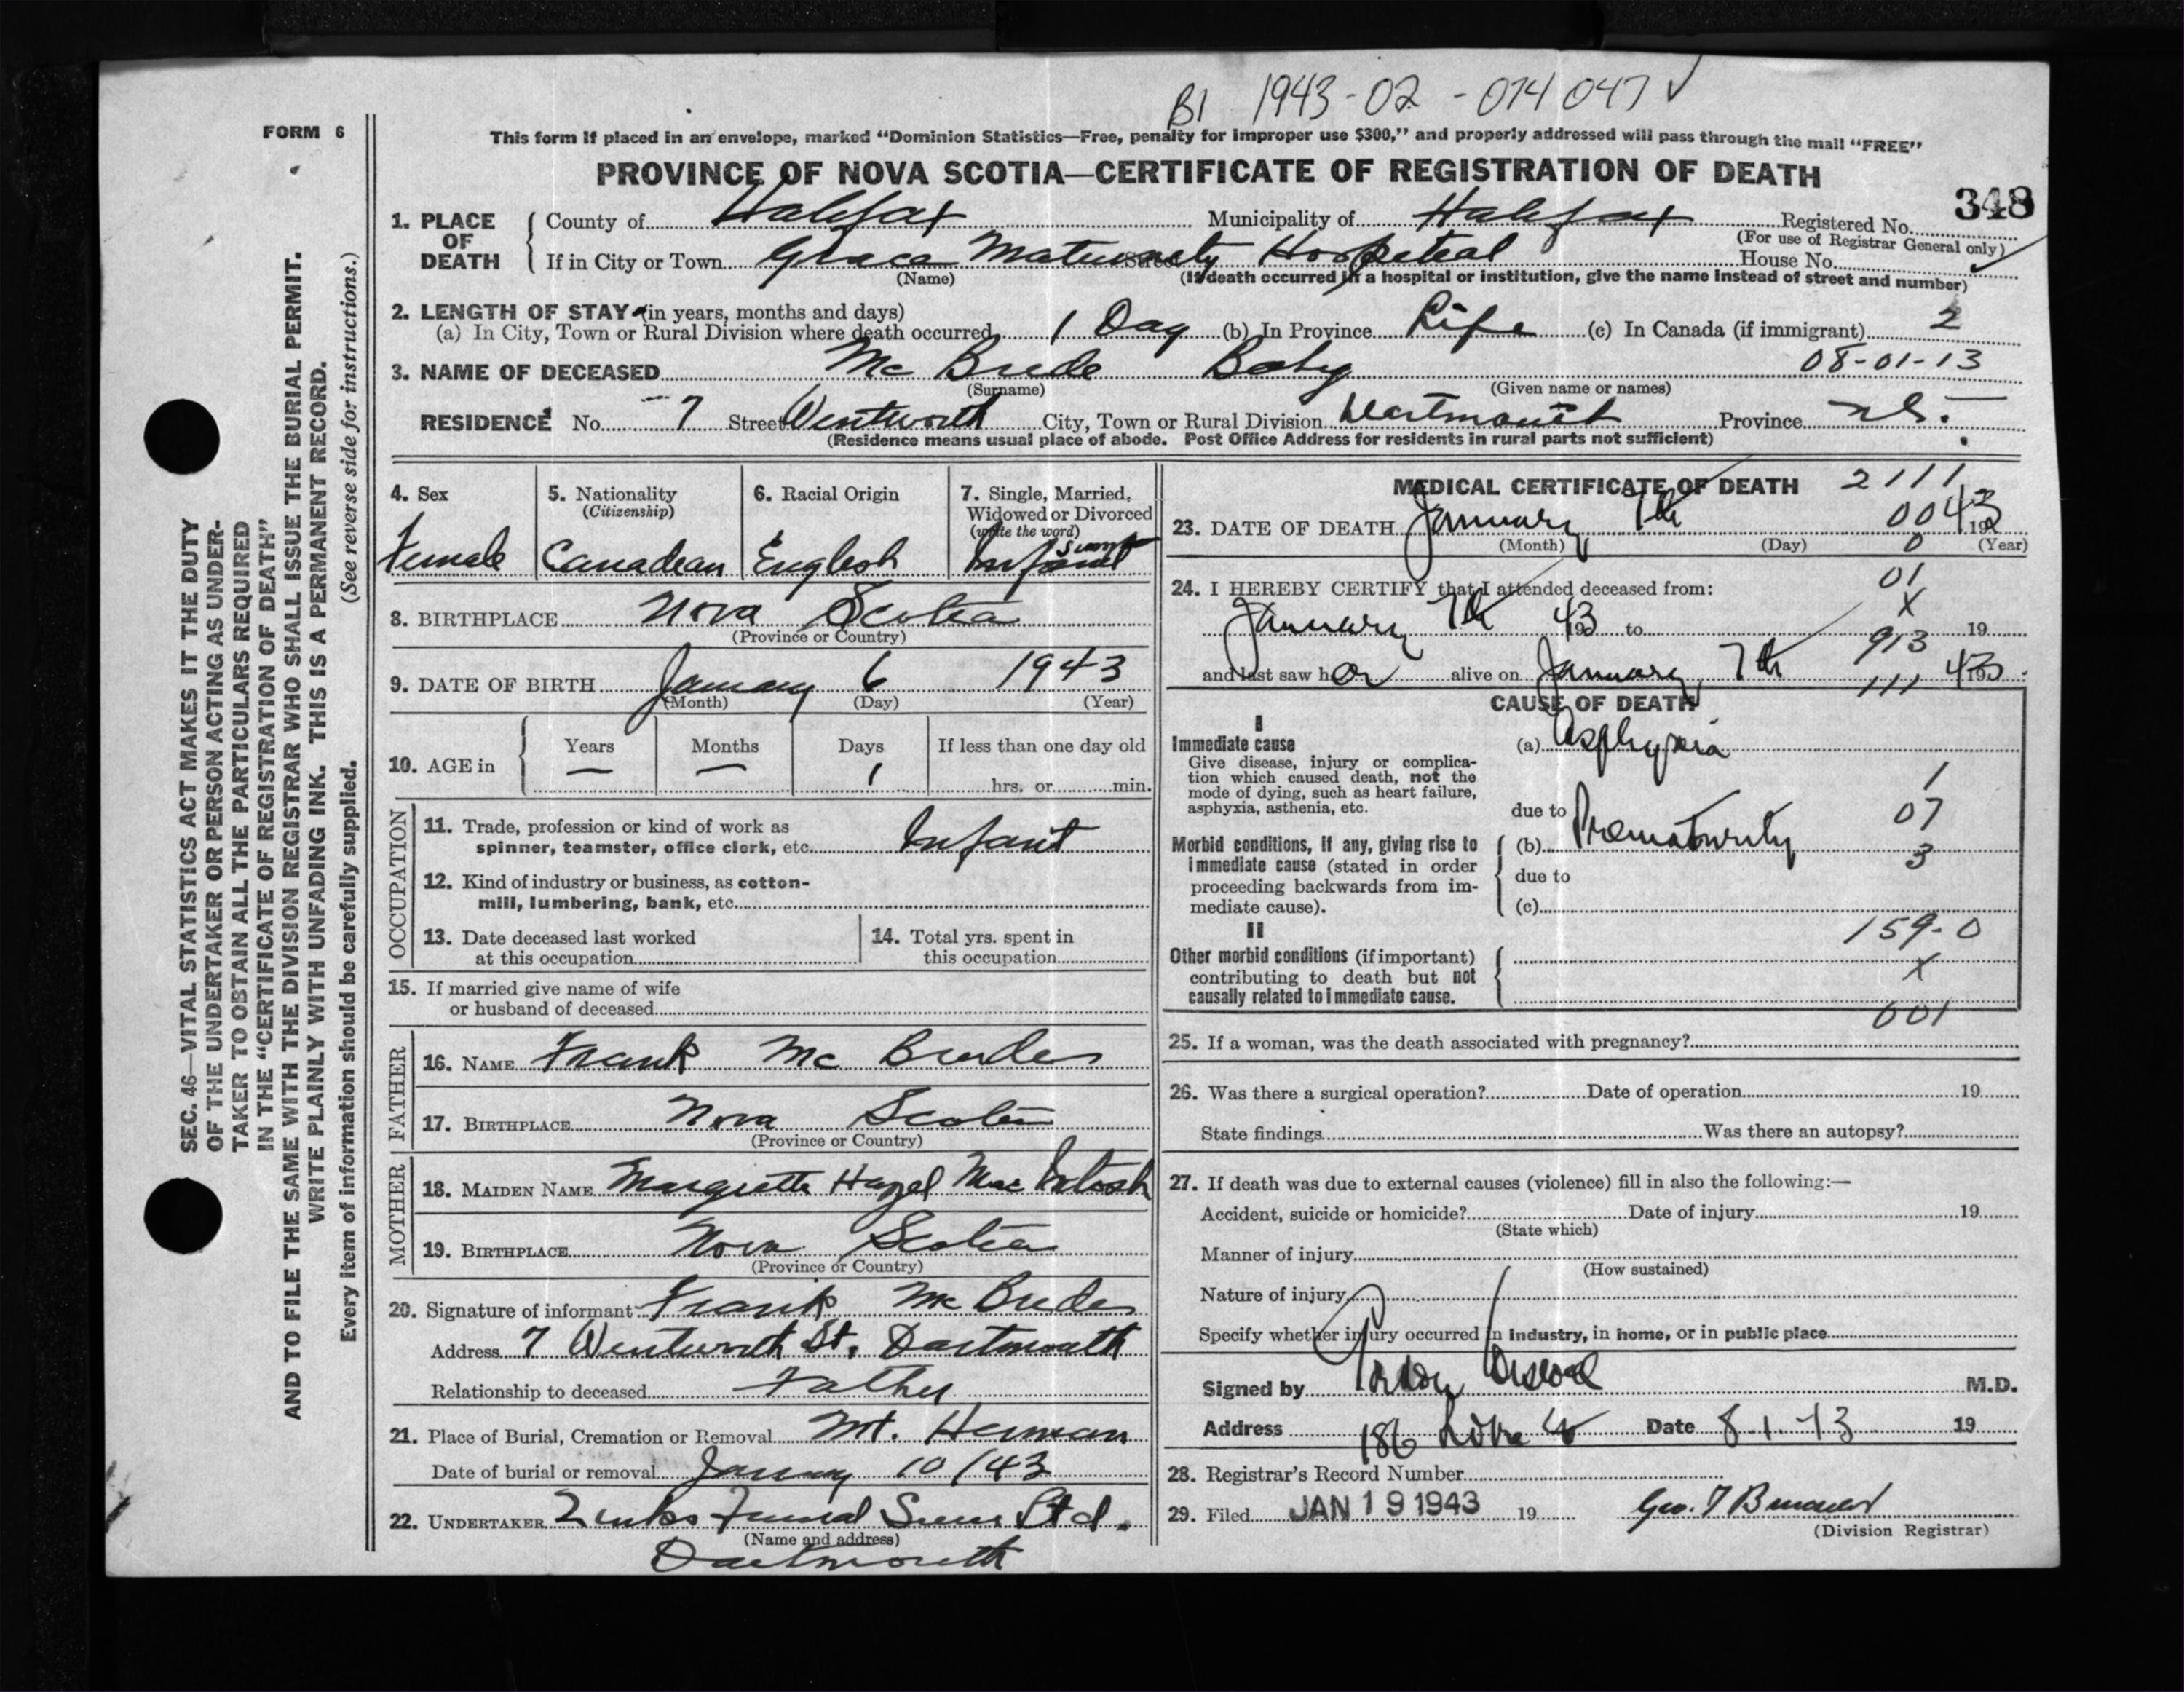 B1 1943-02-074047 ✓
FORM 6
This form if placed in an envelope, marked “Dominion Statistics—Free, penalty for improper use $300,” and properly addressed will pass through the mail “FREE”
PROVINCE OF NOVA SCOTIA—CERTIFICATE OF REGISTRATION OF DEATH
348
1. PLACE OF DEATH
County of Halifax Municipality of Halifax Registered No.
(For use of Registrar General only)
If in City or Town Grace Maternity Hospital Street House No.
(Name) (If death occurred in a hospital or institution, give the name instead of street and number)
2. LENGTH OF STAY (in years, months and days)
(a) In City, Town or Rural Division where death occurred 1 Day (b) In Province Life (c) In Canada (if immigrant) 2
3. NAME OF DECEASED Mc Bride Baby 08-01-13
(Surname) (Given name or names)
RESIDENCE No. 7 Street Wentworth City, Town or Rural Division Dartmouth Province N.S.
(Residence means usual place of abode. Post Office Address for residents in rural parts not sufficient)
4. Sex
Female
5. Nationality
(Citizenship)
Canadian
6. Racial Origin
English
7. Single, Married, Widowed or Divorced
(write the word)
Infant
8. BIRTHPLACE Nova Scotia
(Province or Country)
9. DATE OF BIRTH January 6 1943
(Month) (Day) (Year)
10. AGE in
Years Months Days If less than one day old
— — 1 hrs. or min.
OCCUPATION
11. Trade, profession or kind of work as
spinner, teamster, office clerk, etc. Infant
12. Kind of industry or business, as cotton-
mill, lumbering, bank, etc.
13. Date deceased last worked
at this occupation
14. Total yrs. spent in
this occupation
15. If married give name of wife
or husband of deceased
FATHER
16. NAME Frank Mc Bride
17. BIRTHPLACE Nova Scotia
(Province or Country)
MOTHER
18. MAIDEN NAME Hazel MacIntosh
19. BIRTHPLACE Nova Scotia
(Province or Country)
20. Signature of informant Frank Mc Bride
Address 7 Wentworth St. Dartmouth
Relationship to deceased Father
21. Place of Burial, Cremation or Removal Mt. Herman
Date of burial or removal January 10/43
22. UNDERTAKER Zinks Funeral Ltd.
(Name and address)
Dartmouth
MEDICAL CERTIFICATE OF DEATH 2111
23. DATE OF DEATH January 7th 00 1943
(Month) (Day) 0 (Year)
24. I HEREBY CERTIFY that I attended deceased from: 01
January 7th 1943 to X 19
913
and last saw her alive on January 7th 1943
111
CAUSE OF DEATH
I
Immediate cause
Give disease, injury or complica-
tion which caused death, not the
mode of dying, such as heart failure,
asphyxia, asthenia, etc.
(a) Asphyxia
1
due to
07
Morbid conditions, if any, giving rise to
immediate cause (stated in order
proceeding backwards from im-
mediate cause).
(b) Prematurity
3
due to
(c)
159-0
II
Other morbid conditions (if important)
contributing to death but not
causally related to immediate cause.
X
001
25. If a woman, was the death associated with pregnancy?
26. Was there a surgical operation? Date of operation 19
State findings Was there an autopsy?
27. If death was due to external causes (violence) fill in also the following:—
Accident, suicide or homicide? Date of injury 19
(State which)
Manner of injury
(How sustained)
Nature of injury
Specify whether injury occurred in industry, in home, or in public place
Signed by M.D.
Address 186 Date 8.1.43 19
28. Registrar's Record Number
29. Filed JAN 19 1943 19 Geo. T
(Division Registrar)
SEC. 46—VITAL STATISTICS ACT MAKES IT THE DUTY
OF THE UNDERTAKER OR PERSON ACTING AS UNDER-
TAKER TO OBTAIN ALL THE PARTICULARS REQUIRED
IN THE “CERTIFICATE OF REGISTRATION OF DEATH”
AND TO FILE THE SAME WITH THE DIVISION REGISTRAR WHO SHALL ISSUE THE BURIAL PERMIT.
WRITE PLAINLY WITH UNFADING INK. THIS IS A PERMANENT RECORD.
Every item of information should be carefully supplied. (See reverse side for instructions.)